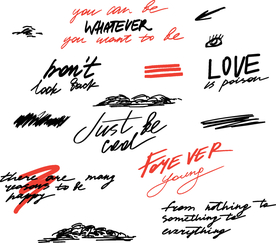 you can be
WHATEVER
you want to be
Don't
look back
LOVE
is poison
Just be
cool
FOREVER
young
there are many
reasons to be
happy
from nothing to
something to
everything